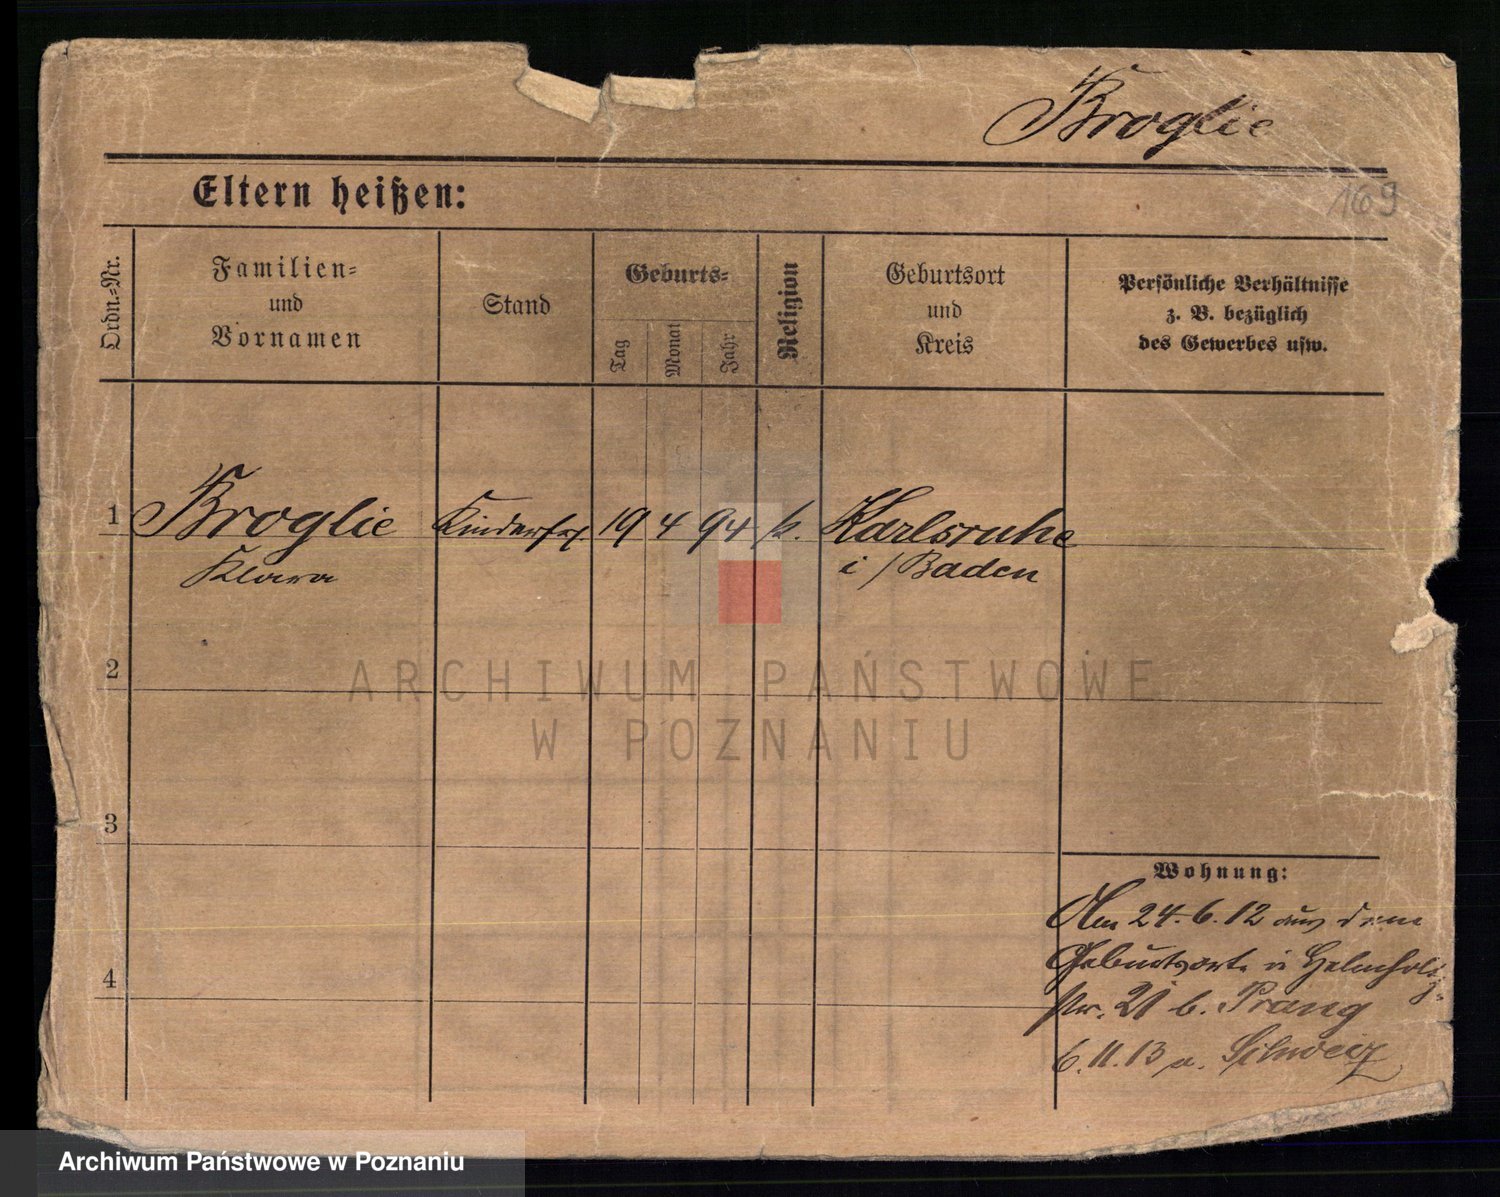 Broglie
Eltern heißen:
169
Ordn.-Nr.
Familien-
und
Vornamen
Stand
Geburts-
Tag
Monat
Jahr
Religion
Geburtsort
und
Kreis
Persönliche Verhältnisse
z. B. bezüglich
des Gewerbes usw.
1 Broglie 19 4 94 k. Karlsruhe
Klara i/Baden
2
3
4
Wohnung:
Am 24.6.12 aus dem
Geburtsorte
21 b. Prang
6.11.13 a. Schweiz
ARCHIWUM PAŃSTWOWE
W POZNANIU
Archiwum Państwowe w Poznaniu